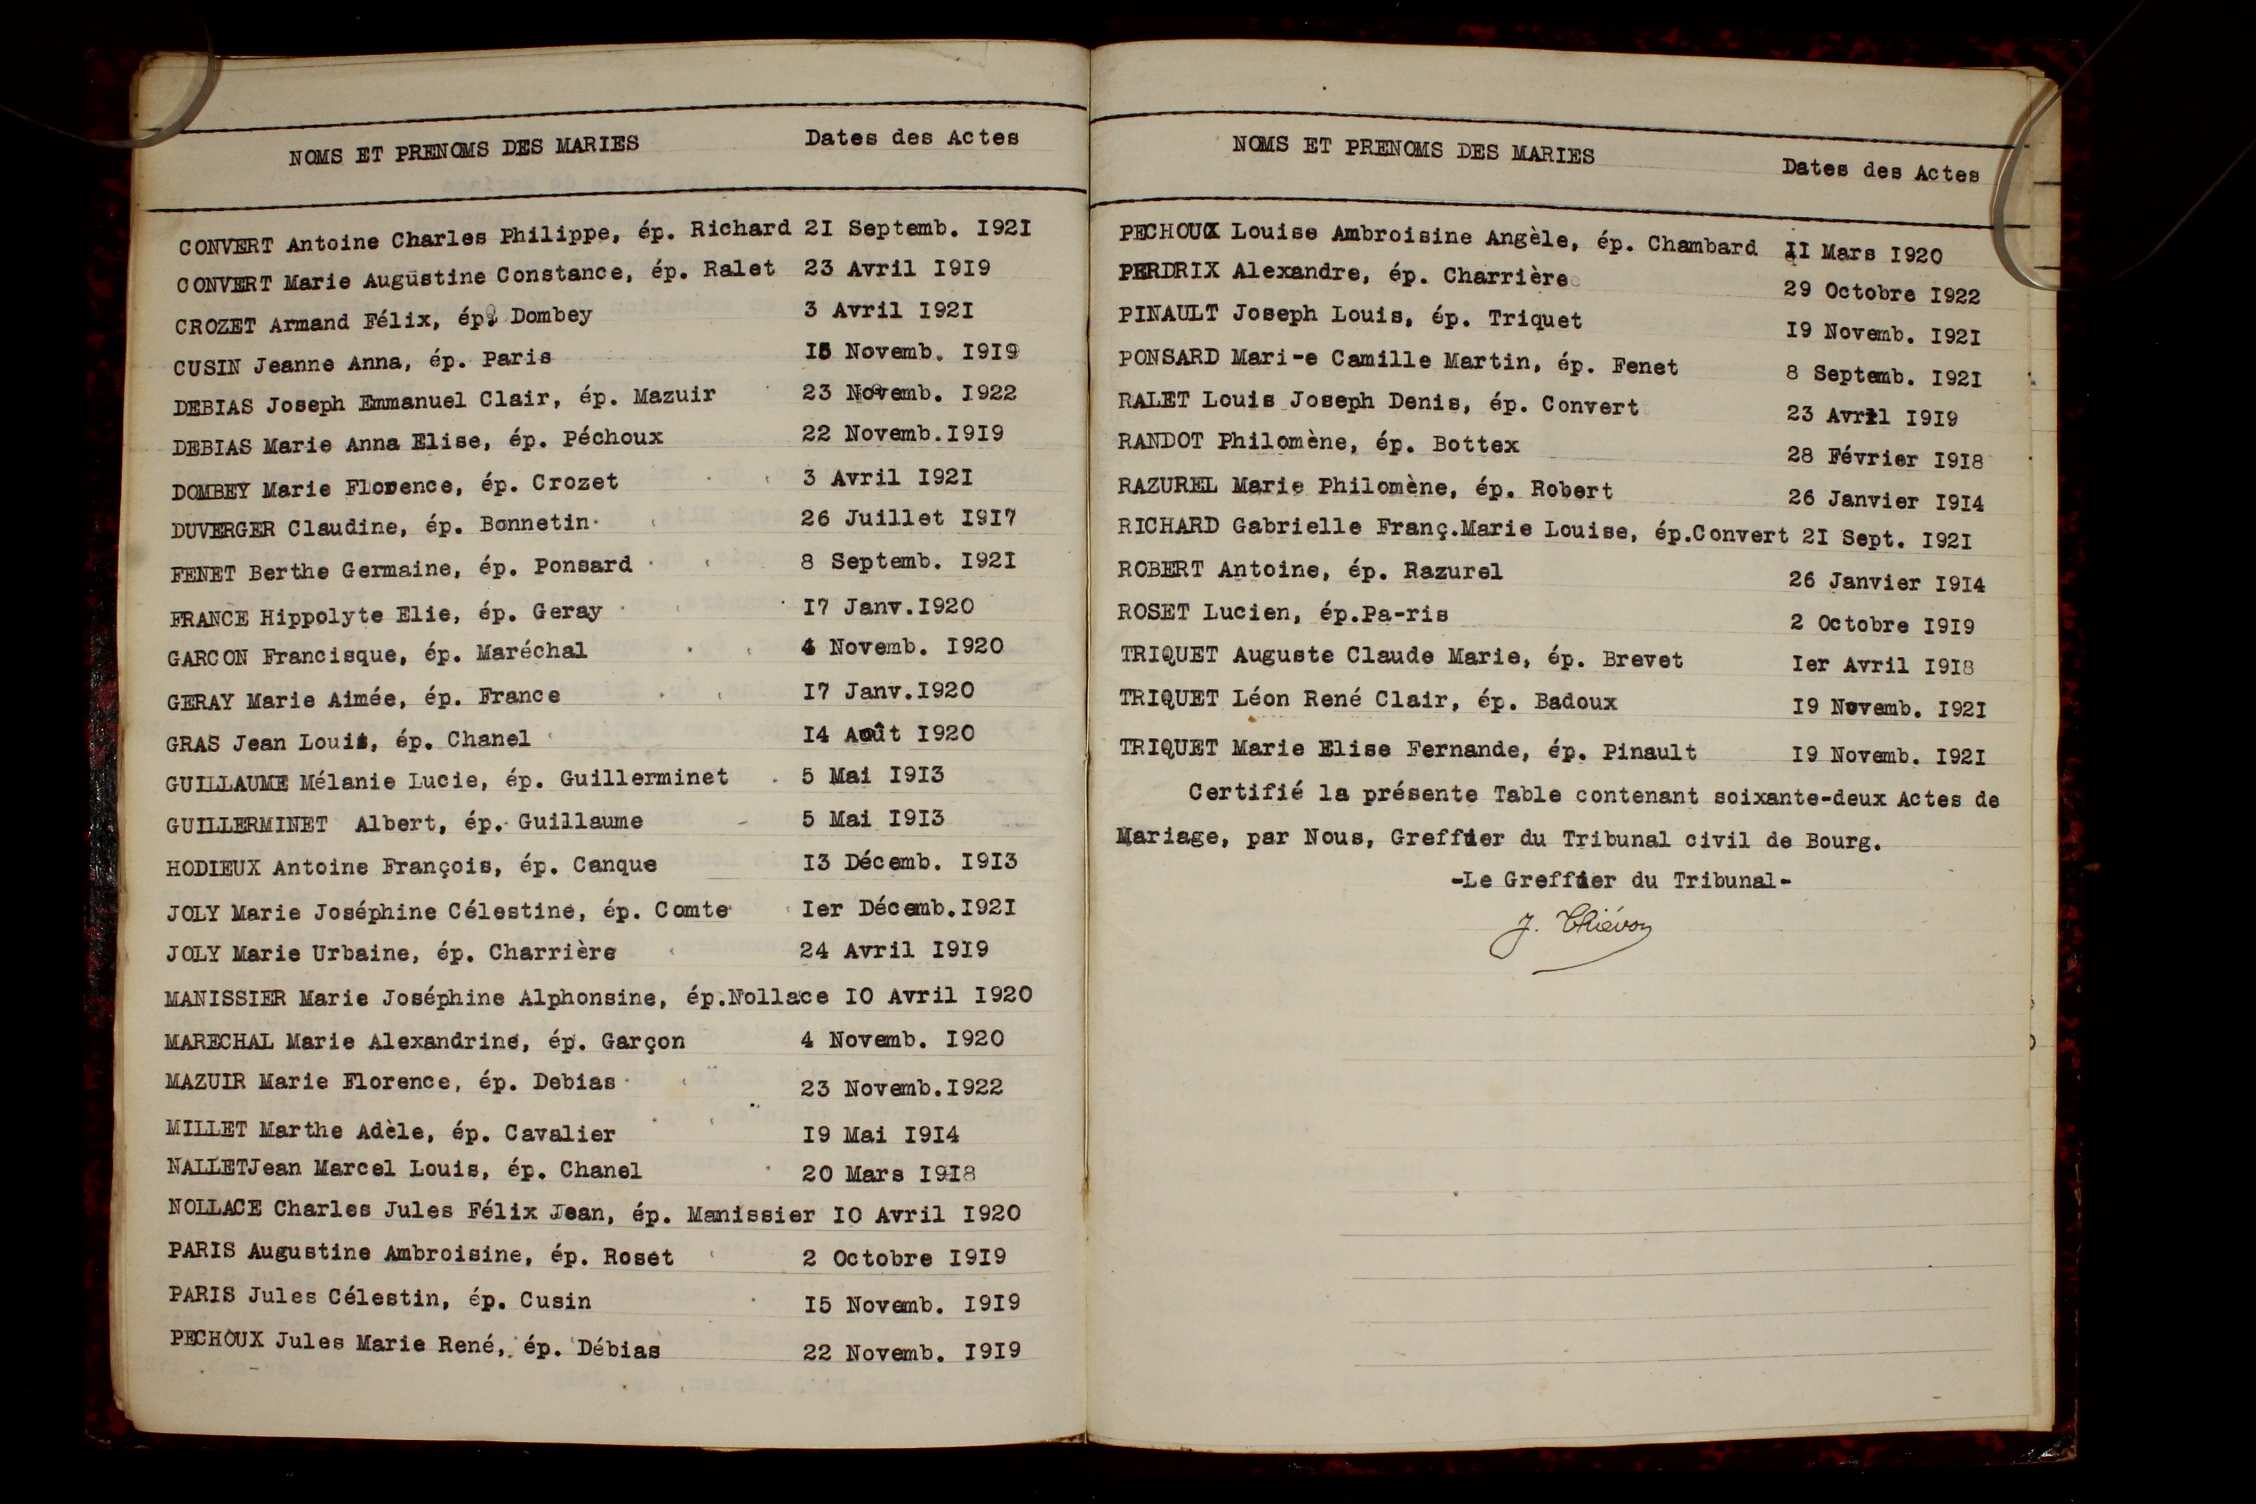 NOMS ET PRENOMS DES MARIES Dates des Actes
CONVERT Antoine Charles Philippe, ép. Richard 2I Septemb. I92I
CONVERT Marie Augustine Constance, ép. Ralet 23 Avril I9I9
CROZET Armand Félix, ép. Dombey 3 Avril I92I
CUSIN Jeanne Anna, ép. Paris I5 Novemb. I9I9
DEBIAS Joseph Emmanuel Clair, ép. Mazuir 23 Novemb. I922
DEBIAS Marie Anna Elise, ép. Péchoux 22 Novemb.I9I9
DOMBEY Marie Florence, ép. Crozet 3 Avril I92I
DUVERGER Claudine, ép. Bonnetin 26 Juillet I9I7
FENET Berthe Germaine, ép. Ponsard 8 Septemb. I92I
FRANCE Hippolyte Elie, ép. Geray I7 Janv.I920
GARCON Francisque, ép. Maréchal 4 Novemb. I920
GERAY Marie Aimée, ép. France I7 Janv.I920
GRAS Jean Louis, ép. Chanel I4 Août I920
GUILLAUME Mélanie Lucie, ép. Guillerminet 5 Mai I9I3
GUILLERMINET Albert, ép. Guillaume 5 Mai I9I3
HODIEUX Antoine François, ép. Canque I3 Décemb. I9I3
JOLY Marie Joséphine Célestine, ép. Comte Ier Décemb.I92I
JOLY Marie Urbaine, ép. Charrière 24 Avril I9I9
MANISSIER Marie Joséphine Alphonsine, ép.Nollace IO Avril I920
MARECHAL Marie Alexandrine, ép. Garçon 4 Novemb. I920
MAZUIR Marie Florence, ép. Debias 23 Novemb.I922
MILLET Marthe Adèle, ép. Cavalier I9 Mai I9I4
NALLETJean Marcel Louis, ép. Chanel 20 Mars I9I8
NOLLACE Charles Jules Félix Jean, ép. Manissier IO Avril I920
PARIS Augustine Ambroisine, ép. Roset 2 Octobre I9I9
PARIS Jules Célestin, ép. Cusin I5 Novemb. I9I9
PECHOUX Jules Marie René, ép. Débias 22 Novemb. I9I9
NOMS ET PRENOMS DES MARIES Dates des Actes
PECHOUX Louise Ambroisine Angèle, ép. Chambard II Mars I920
PERDRIX Alexandre, ép. Charrière 29 Octobre I922
PINAULT Joseph Louis, ép. Triquet I9 Novemb. I92I
PONSARD Mari-e Camille Martin, ép. Fenet 8 Septemb. I92I
RALET Louis Joseph Denis, ép. Convert 23 Avril I9I9
RANDOT Philomène, ép. Bottex 28 Février I9I8
RAZUREL Marie Philomène, ép. Robert 26 Janvier I9I4
RICHARD Gabrielle Franç.Marie Louise, ép.Convert 2I Sept. I92I
ROBERT Antoine, ép. Razurel 26 Janvier I9I4
ROSET Lucien, ép.Pa-ris 2 Octobre I9I9
TRIQUET Auguste Claude Marie, ép. Brevet Ier Avril I9I8
TRIQUET Léon René Clair, ép. Badoux I9 Novemb. I92I
TRIQUET Marie Elise Fernande, ép. Pinault I9 Novemb. I92I
Certifié la présente Table contenant soixante-deux Actes de
Mariage, par Nous, Greffier du Tribunal civil de Bourg.
-Le Greffier du Tribunal-
J. Thiévon